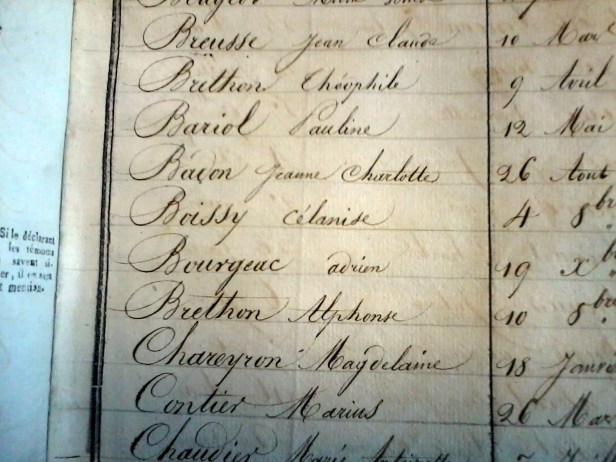 Breusse Jean Claude 10 Mar
Brethon Théophile 9 Avril
Bariol Pauline 12 Mai
Baçon Jeanne Charlotte 26 Aout
Boissy Célanise 4 8bre
Bourgeac adrien 19 Xb
Brethon Alphonse 10 8bre
Chareyron Magdelaine 18 Janvie
Contier Marius 26 Mar
Chaudier Marie
Si le déclarant
les témoins
savent si-
er, il en sera
t mention.